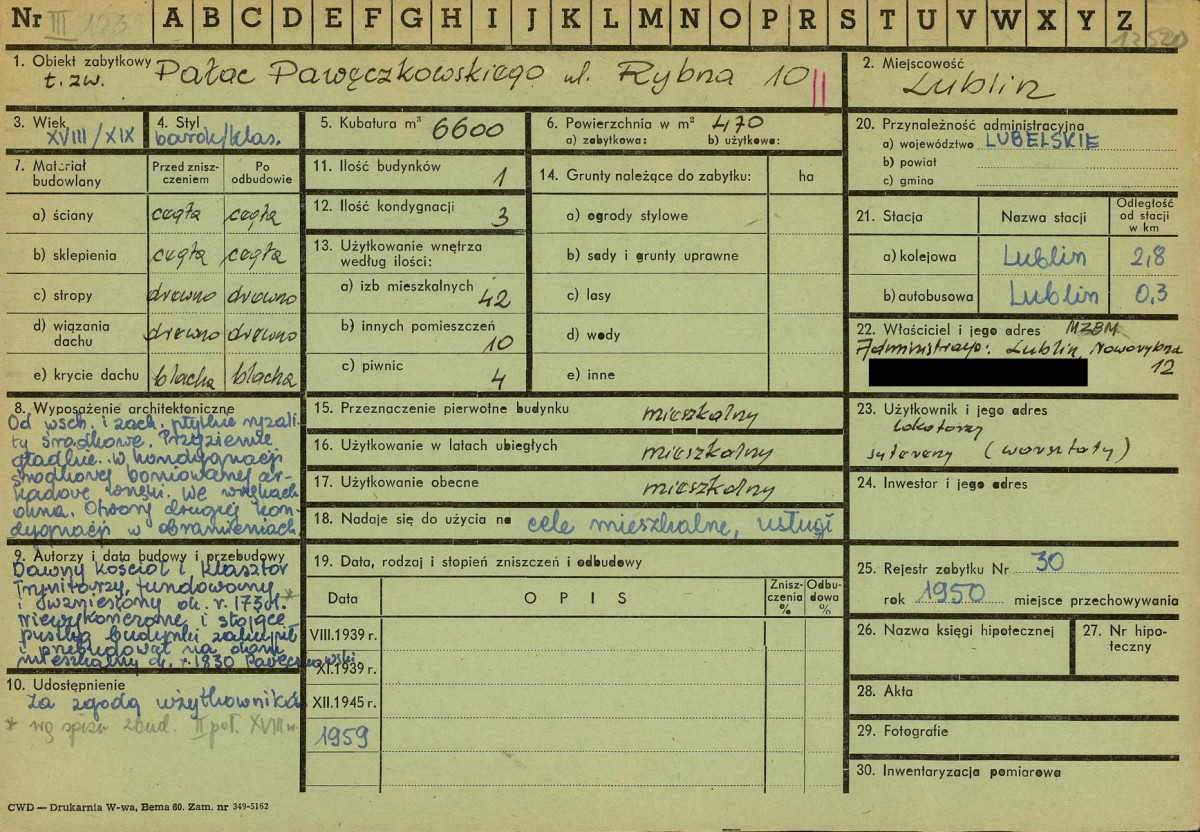 Nr III 123 A B C D E F G H I J K L M N O P R S T U V W X Y Z
1. Obiekt zabytkowy
t. zw. Pałac Pawęczkowskiego ul. Rybna 10
2. Miejscowość
Lublin
3. Wiek
XVIII/XIX
4. Styl
barok/klas.
5. Kubatura m³ 6600
6. Powierzchnia w m² 470
a) zabytkowa: b) użytkowa:
7. Materiał budowlany
Przed zniszczeniem
Po odbudowie
a) ściany cegła cegła
b) sklepienia cegła cegła
c) stropy drewno drewno
d) wiązania dachu drewno drewno
e) krycie dachu blacha blacha
8. Wyposażenie architektoniczne
Od wsch. i zach. płytkie ryzali-
ty środkowe. Przyziemie
gładkie. W kondygnacji
środkowej boniowanej ar-
kadowe wnęki. We wnękach
okna. Otwory drugiej kon-
dygnacji w obramieniach.
9. Autorzy i data budowy i przebudowy
Dawny kościół i klasztor
Trynitarzy, fundowany
i wzniesiony ok. r. 173 *
niewykończone i stojące
pustką budynki zakupił
i przebudował na dom
mieszkalny ok. r. 1830 Pawęczkowski
10. Udostępnienie
za zgodą użytkownika
* wg spisu zbud. II poł. XVIII w.
11. Ilość budynków 1
12. Ilość kondygnacji 3
13. Użytkowanie wnętrza według ilości:
a) izb mieszkalnych 42
b) innych pomieszczeń 10
c) piwnic 4
14. Grunty należące do zabytku: ha
a) ogrody stylowe
b) sady i grunty uprawne
c) lasy
d) wody
e) inne
15. Przeznaczenie pierwotne budynku mieszkalny
16. Użytkowanie w latach ubiegłych mieszkalny
17. Użytkowanie obecne mieszkalny
18. Nadaje się do użycia na cele mieszkalne, usługi
19. Data, rodzaj i stopień zniszczeń i odbudowy
Data OPIS Zniszczenia % Odbudowa %
VIII.1939 r.
XI.1939 r.
XII.1945 r.
1959
20. Przynależność administracyjna
a) województwo LUBELSKIE
b) powiat
c) gmina
21. Stacja Nazwa stacji Odległość od stacji w km
a) kolejowa Lublin 2,8
b) autobusowa Lublin 0,3
22. Właściciel i jego adres MZBM
Lublin, Nowo­rybna
12
23. Użytkownik i jego adres
lokatorzy
sutereny (warsztaty)
24. Inwestor i jego adres
25. Rejestr zabytku Nr 30
rok 1950 miejsce przechowywania
26. Nazwa księgi hipotecznej
27. Nr hipoteczny
28. Akta
29. Fotografie
30. Inwentaryzacja pomiarowa
CWD — Drukarnia W-wa, Bema 60. Zam. nr 349-5162